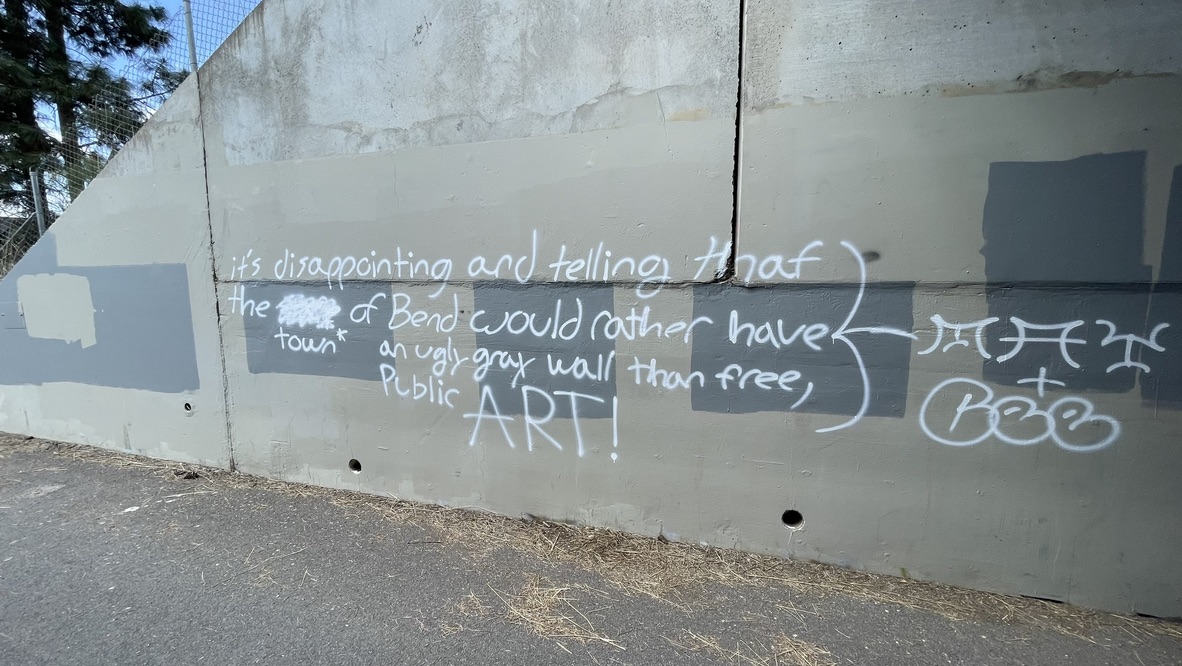 it's disappointing and telling that
the of Bend would rather have
town*
an ugly gray wall than free,
Public ART!
+